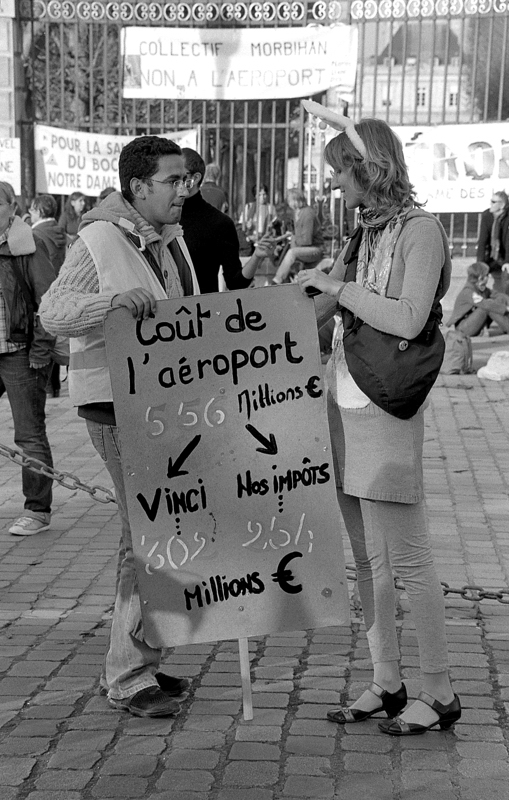 COLLECTIF MORBIHAN
NON A L'AEROPORT
POUR LA
DU BOC
NOTRE DAME
Coût de
l'aéroport
556 Millions €
Vinci
Nos impôts
Millions €